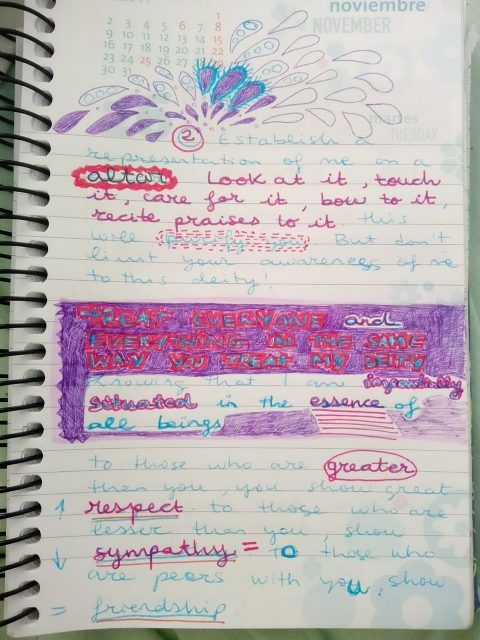 noviembre
NOVEMBER
1
2 3 4 5 6 7 8
9 10 11 12 13 14 15
16 17 18 19 20 21 22
23 24 25 26 27 28 29
30 31
martes
TUESDAY
2 Establish a
representation of me on a
altar. Look at it, touch
it, care for it, bow to it,
recite praises to it. this
will purify you. But don't
limit your awareness of me
to this deity!
TREAT EVERYONE and
EVERYTHING IN THE SAME
WAY YOU TREAT MY DEITY
Knowing that I am impartially
situated in the essence of
all beings
to those who are greater
than you, you show great
↑ respect to those who are
lesser than you, show
↓ sympathy = to those who
are peers with you, show
= friendship.